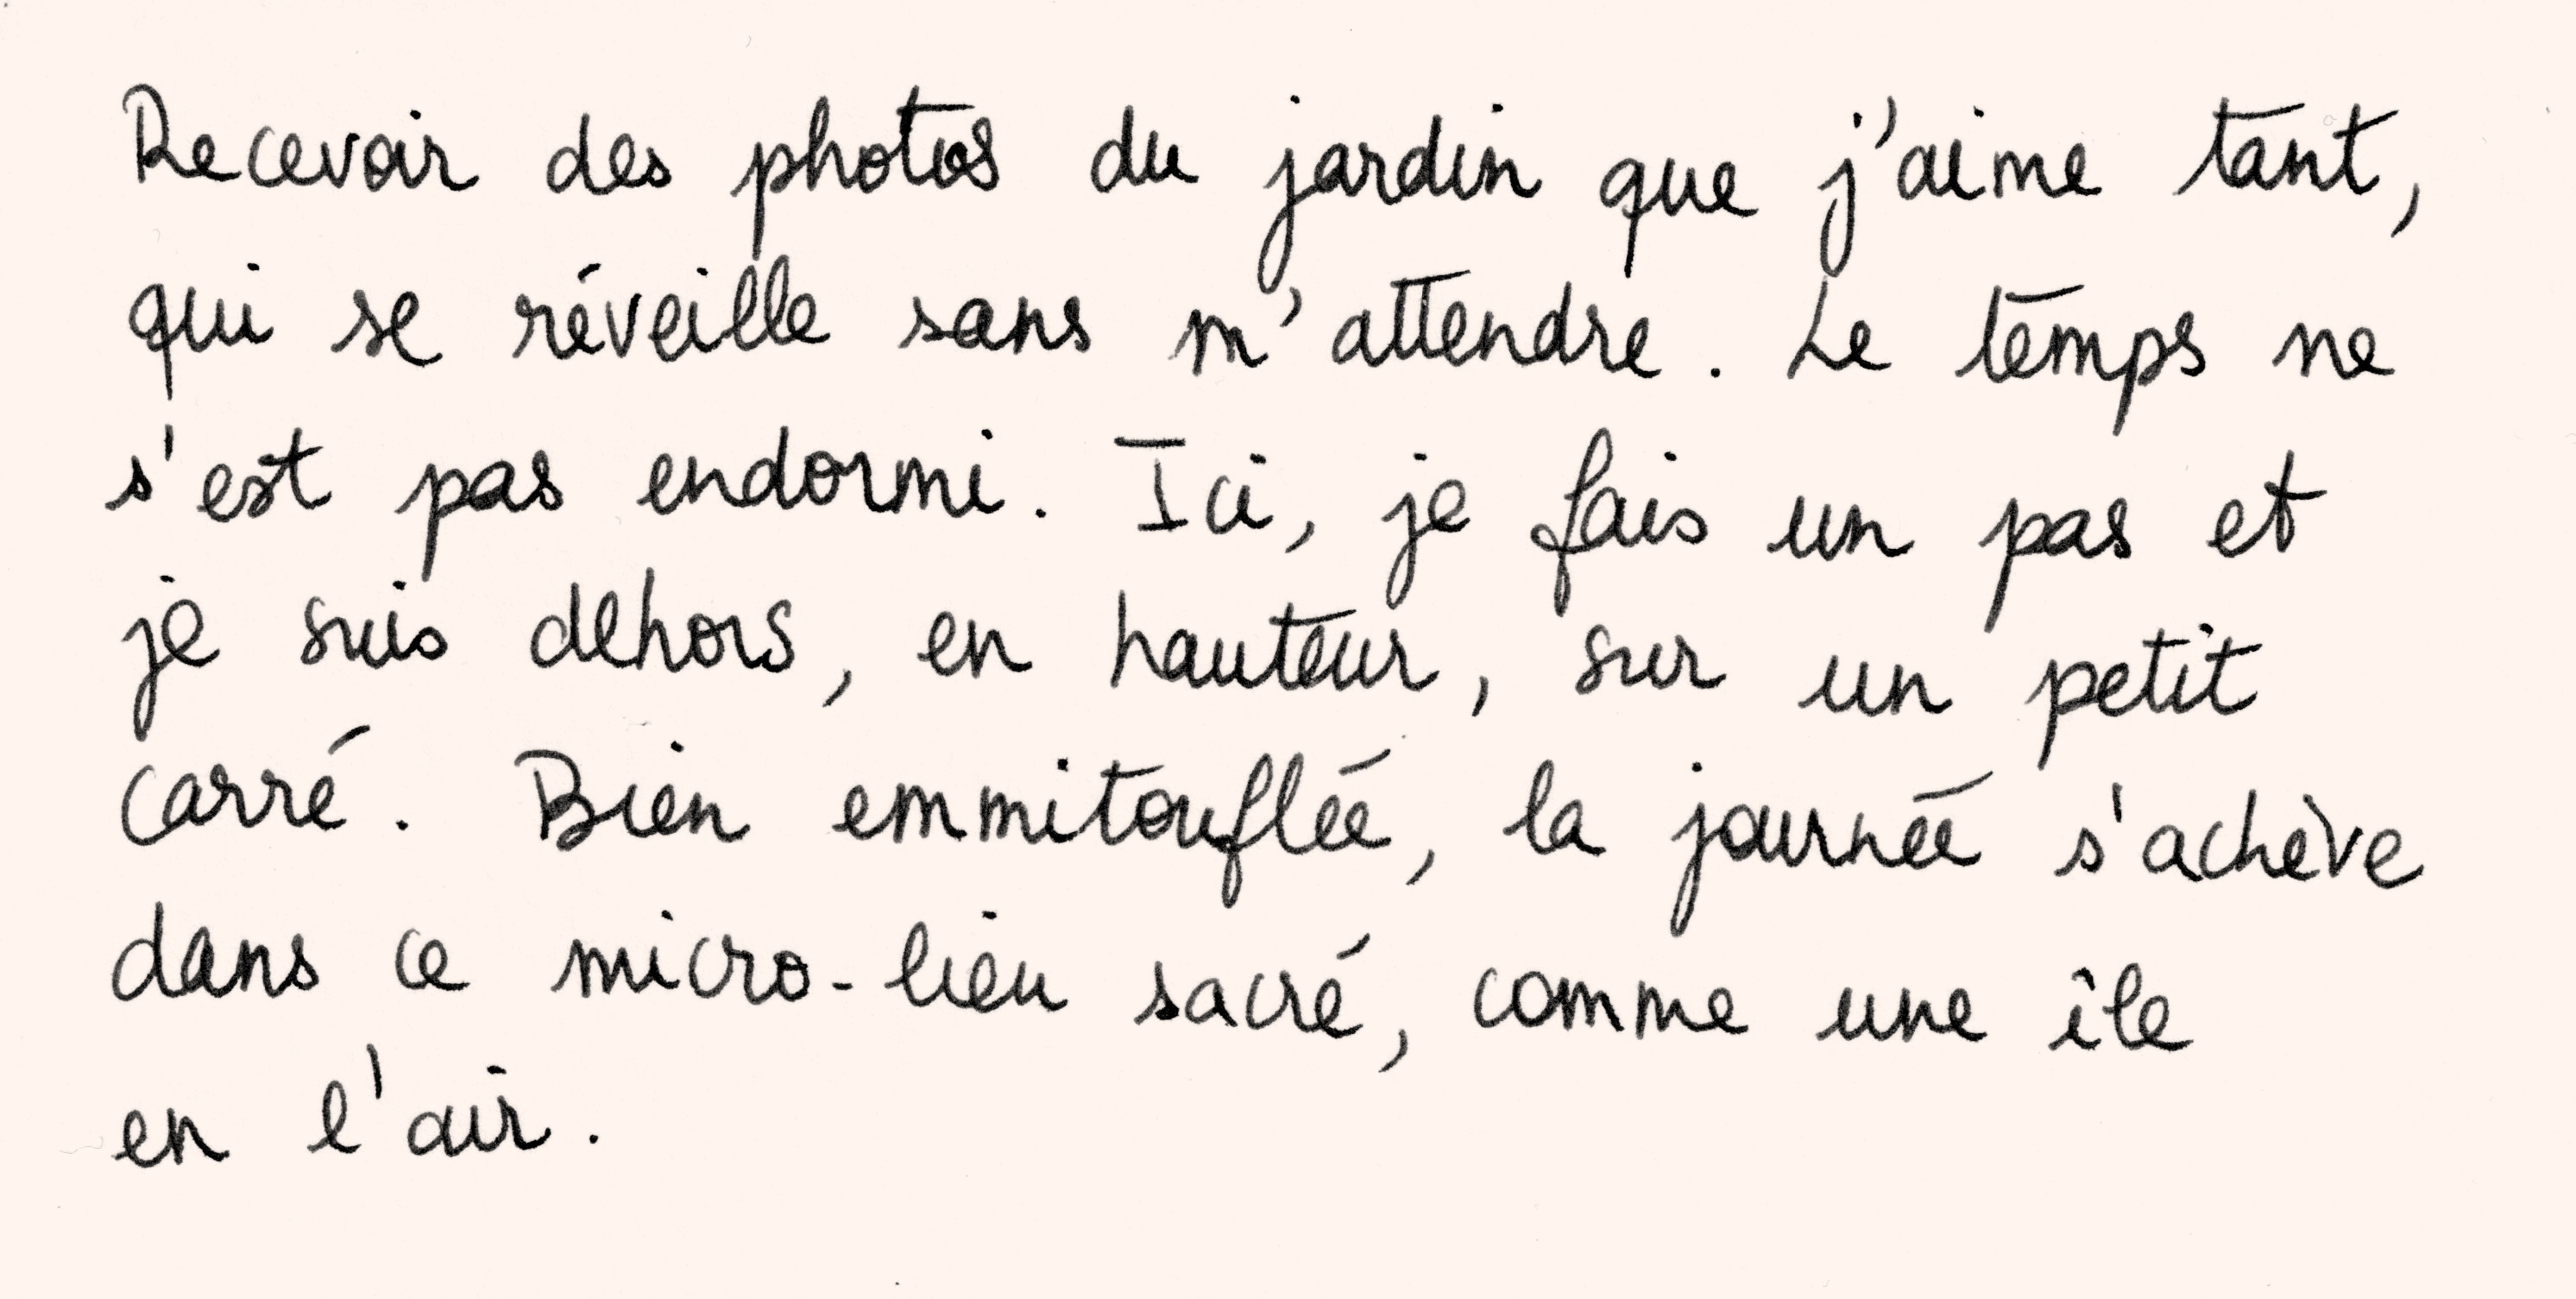 Recevoir des photos du jardin que j'aime tant,
qui se réveille sans m'attendre. Le temps ne
s'est pas endormi. Ici, je fais un pas et
je suis dehors, en hauteur, sur un petit
carré. Bien emmitouflée, la journée s'achève
dans ce micro-lieu sacré, comme une île
en l'air.